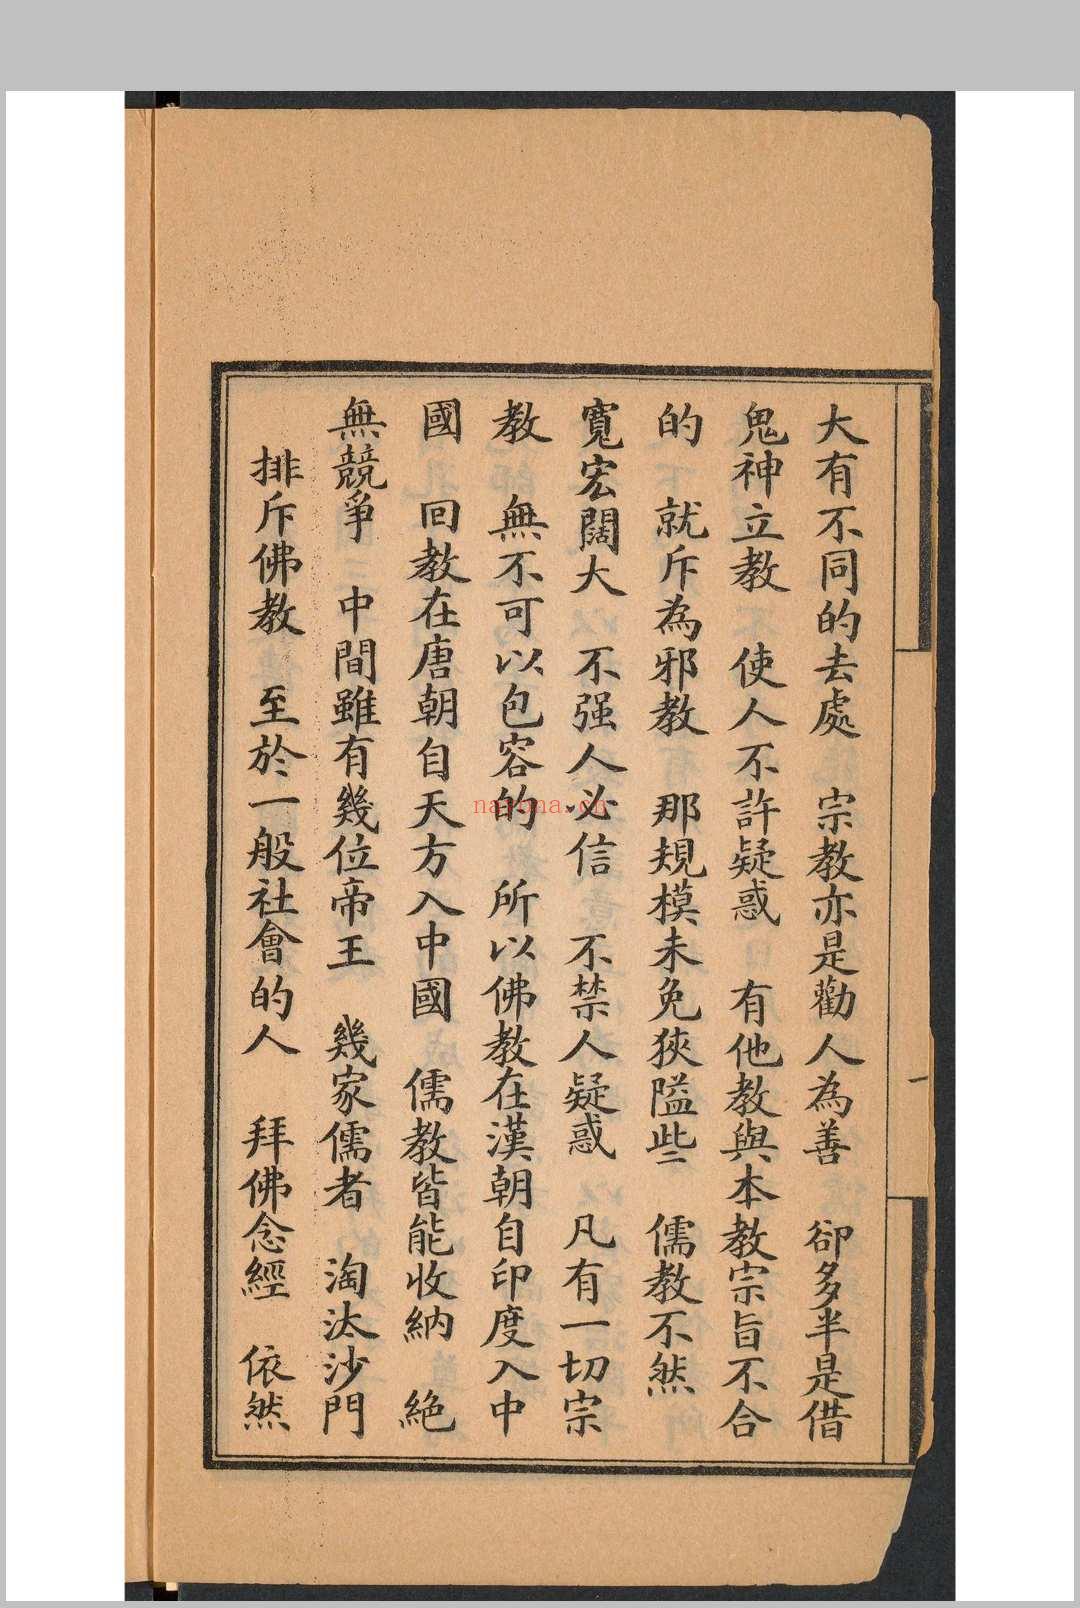 大有不同的去處　宗教亦是勸人為善　卻多半是借
鬼神立教　使人不許疑惑　有他教與本教宗旨不合
的　就斥為邪教　那規模未免狹隘些　儒教不然
寬宏闊大　不强人必信　不禁人疑惑　凡有一切宗
教　無不可以包容的　所以佛教在漢朝自印度入中
國　回教在唐朝自天方入中國　儒教皆能收納　絕
無競爭　中間雖有幾位帝王　幾家儒者　淘汰沙門
排斥佛教　至於一般社會的人　拜佛念經　依然
一
nayona.cn